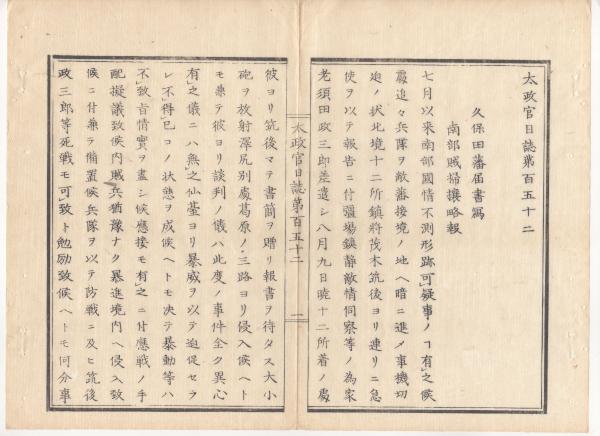 太政官日誌第百五十二
久保田藩届書寫
南部賊掃攘略報
七月以来南部國情不測形跡可疑事ノヿ有之候
處追々兵隊ヲ敵藩接境ノ地ヘ暗ニ進メ事機切
迫ノ状此境十二所鎮將茂木筑後ヨリ連リニ急
使ヲ以テ報告ニ付彊場鎮静敵情伺察等ノ為家
老須田政三郎差遣シ八月九日暁十二所着ノ處
太政官日誌第百五十二
一
彼ヨリ筑後マテ書簡ヲ贈リ報書ヲ待タス大小
砲ヲ放射澤尻別處葛原ノ三路ヨリ侵入候ヘト
モ兼テ彼ヨリ談判ノ儀ハ此度ノ事件全ク異心
有之儀ニハ無之仙䑓ヨリ暴威ヲ以テ迫促セラ
レ不得已コノ状態ヲ成候ヘトモ决テ暴動等ハ
不致旨情實ヲ盡シ候應接モ有之ニ付應戦ノ手
配擬議致候内賊兵猶豫ナク暴進境内ヘ侵入致
候ニ付兼テ備置候兵隊ヲ以テ防戦ニ及ヒ筑後
政三郎等死戦モ可致ト勉励致候ヘトモ何分事